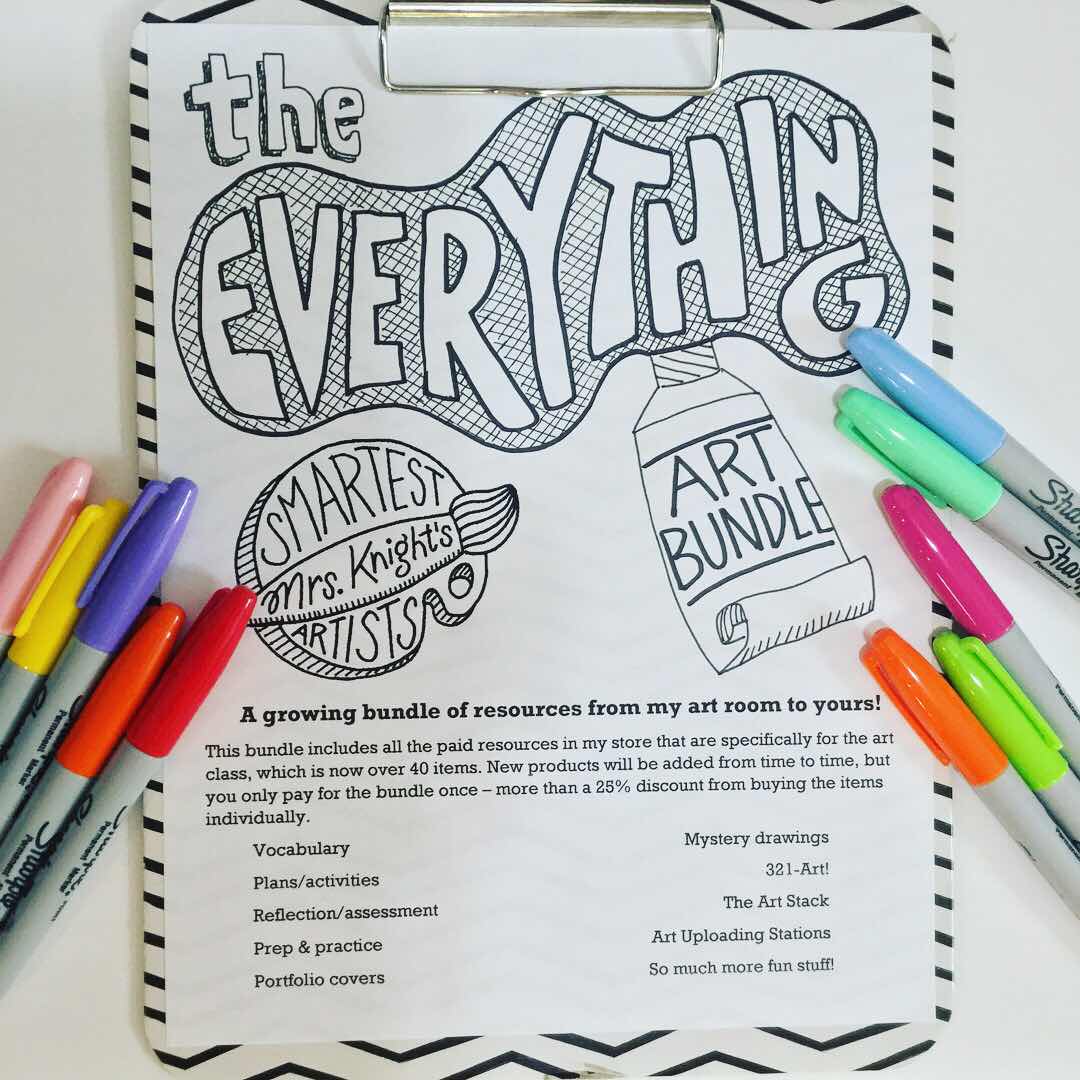 the
EVERYTHING
ART
BUNDLE
SMARTEST
Mrs. Knight's
ARTISTS
A growing bundle of resources from my art room to yours!
This bundle includes all the paid resources in my store that are specifically for the art
class, which is now over 40 items. New products will be added from time to time, but
you only pay for the bundle once – more than a 25% discount from buying the items
individually.
Vocabulary
Plans/activities
Reflection/assessment
Prep & practice
Portfolio covers
Mystery drawings
321-Art!
The Art Stack
Art Uploading Stations
So much more fun stuff!
Permanent
Permanent Marker
Sharpie
Permanent Marker